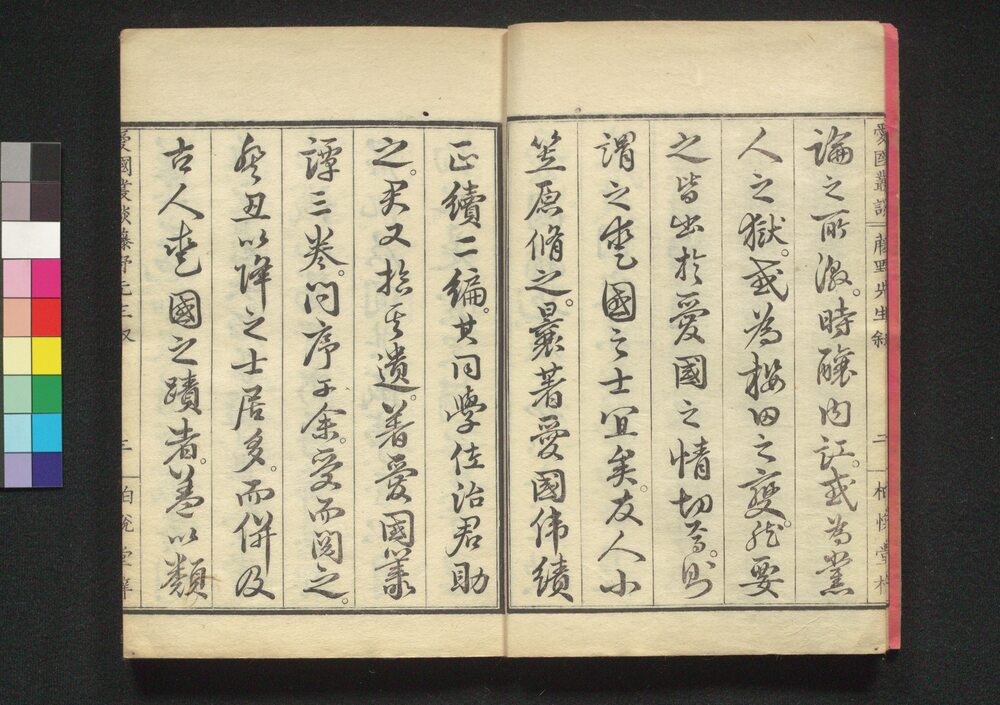 愛國叢談 藤野先生敘 二
論之所激。時釀内訌。或為黨
人之獄。或為櫻田之變。然要
之皆出於愛國之情切焉。則
謂之愛國之士宜矣。友人小
笠原脩之。曩著愛國偉績
正續二編。其同學佐治君助
之。君又拾其遺。著愛國叢
譚三卷。問序于余。受而閲之。
癸丑以降之士居多。而併及
古人愛國之蹟者。蓋以類
愛國叢談